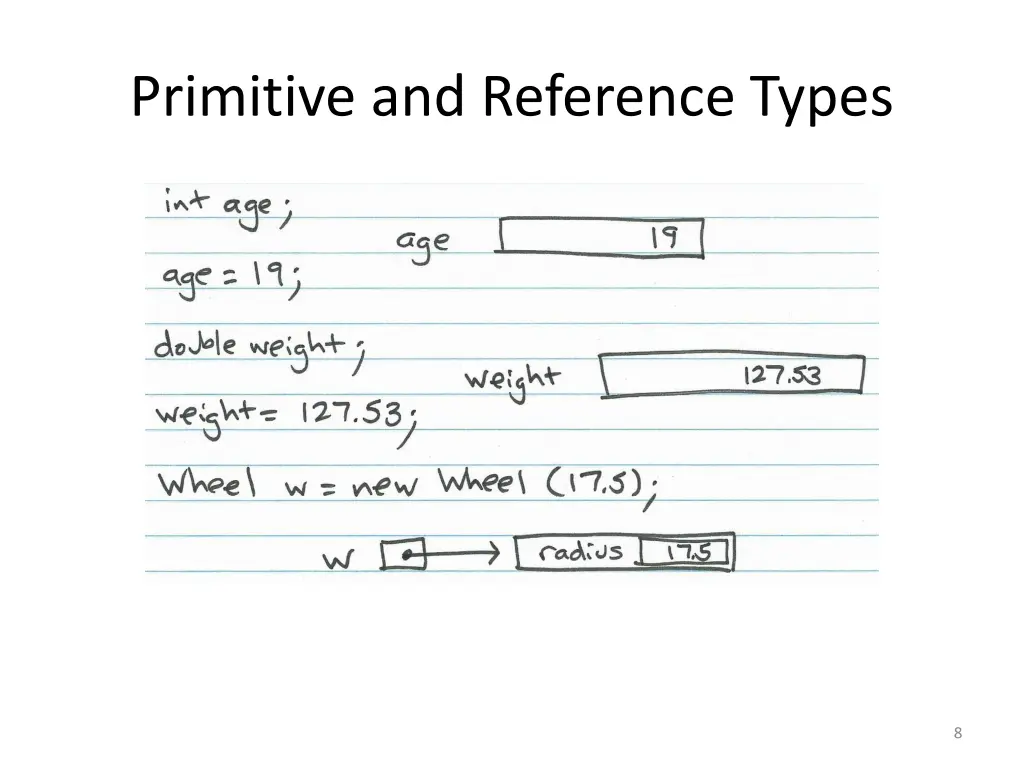 Primitive and Reference Types
int age;
age 19
age = 19;
double weight;
weight 127.53
weight = 127.53;
Wheel w = new Wheel (17.5);
w radius 17.5
8